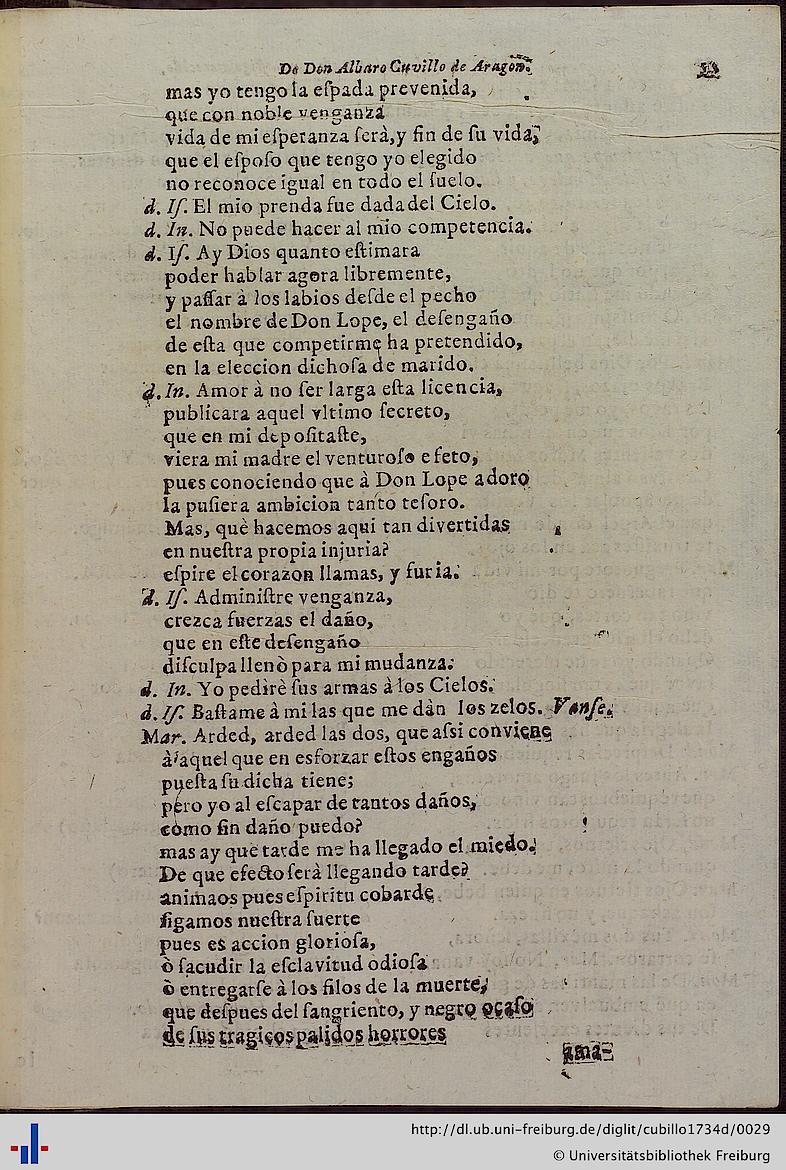 De Don Albaro Cuvillo de Aragon.
mas yo tengo la eſpada prevenida,
que con noble venganza
vida de mi eſperanza ſerà, y fin de ſu vida;
que el eſpoſo que tengo yo elegido
no reconoce igual en todo el ſuelo.
d. Iſ. El mio prenda fue dada del Cielo.
d. In. No puede hacer al mio competencia.
d. Iſ. Ay Dios quanto eſtimara
poder hablar agora libremente,
y paſſar à los labios deſde el pecho
el nombre de Don Lope, el deſengaño
de eſta que competirme ha pretendido,
en la eleccion dichoſa de marido.
d. In. Amor à no ſer larga eſta licencia,
publicara aquel vltimo ſecreto,
que en mi depoſitaſte,
viera mi madre el venturoſo efeto,
pues conociendo que à Don Lope adoro
la puſiera ambicion tanto teſoro.
Mas, què hacemos aqui tan divertidas
en nueſtra propia injuria?
eſpire el corazon llamas, y furia.
d. Iſ. Adminiſtre venganza,
crezca fuerzas el daño,
que en eſte deſengaño
diſculpa llenò para mi mudanza.
d. In. Yo pedirè ſus armas à los Cielos.
d. Iſ. Baſtame à mi las que me dàn los zelos. Vanſe.
Mar. Arded, arded las dos, que aſsi conviene
à aquel que en esforzar eſtos engaños
pueſta ſu dicha tiene;
pero yo al eſcapar de tantos daños,
como ſin daño puedo?
mas ay que tarde me ha llegado el miedo.
De que efecto ſerà llegando tarde?
animaos pues eſpiritu cobarde
ſigamos nueſtra ſuerte
pues es accion glorioſa,
ò ſacudir la eſclavitud odioſa
ò entregarſe à los filos de la muerte,
que deſpues del ſangriento, y negro ocaſo
de ſus tragicos palidos horrores
ama-
http://dl.ub.uni-freiburg.de/diglit/cubillo1734d/0029
© Universitätsbibliothek Freiburg